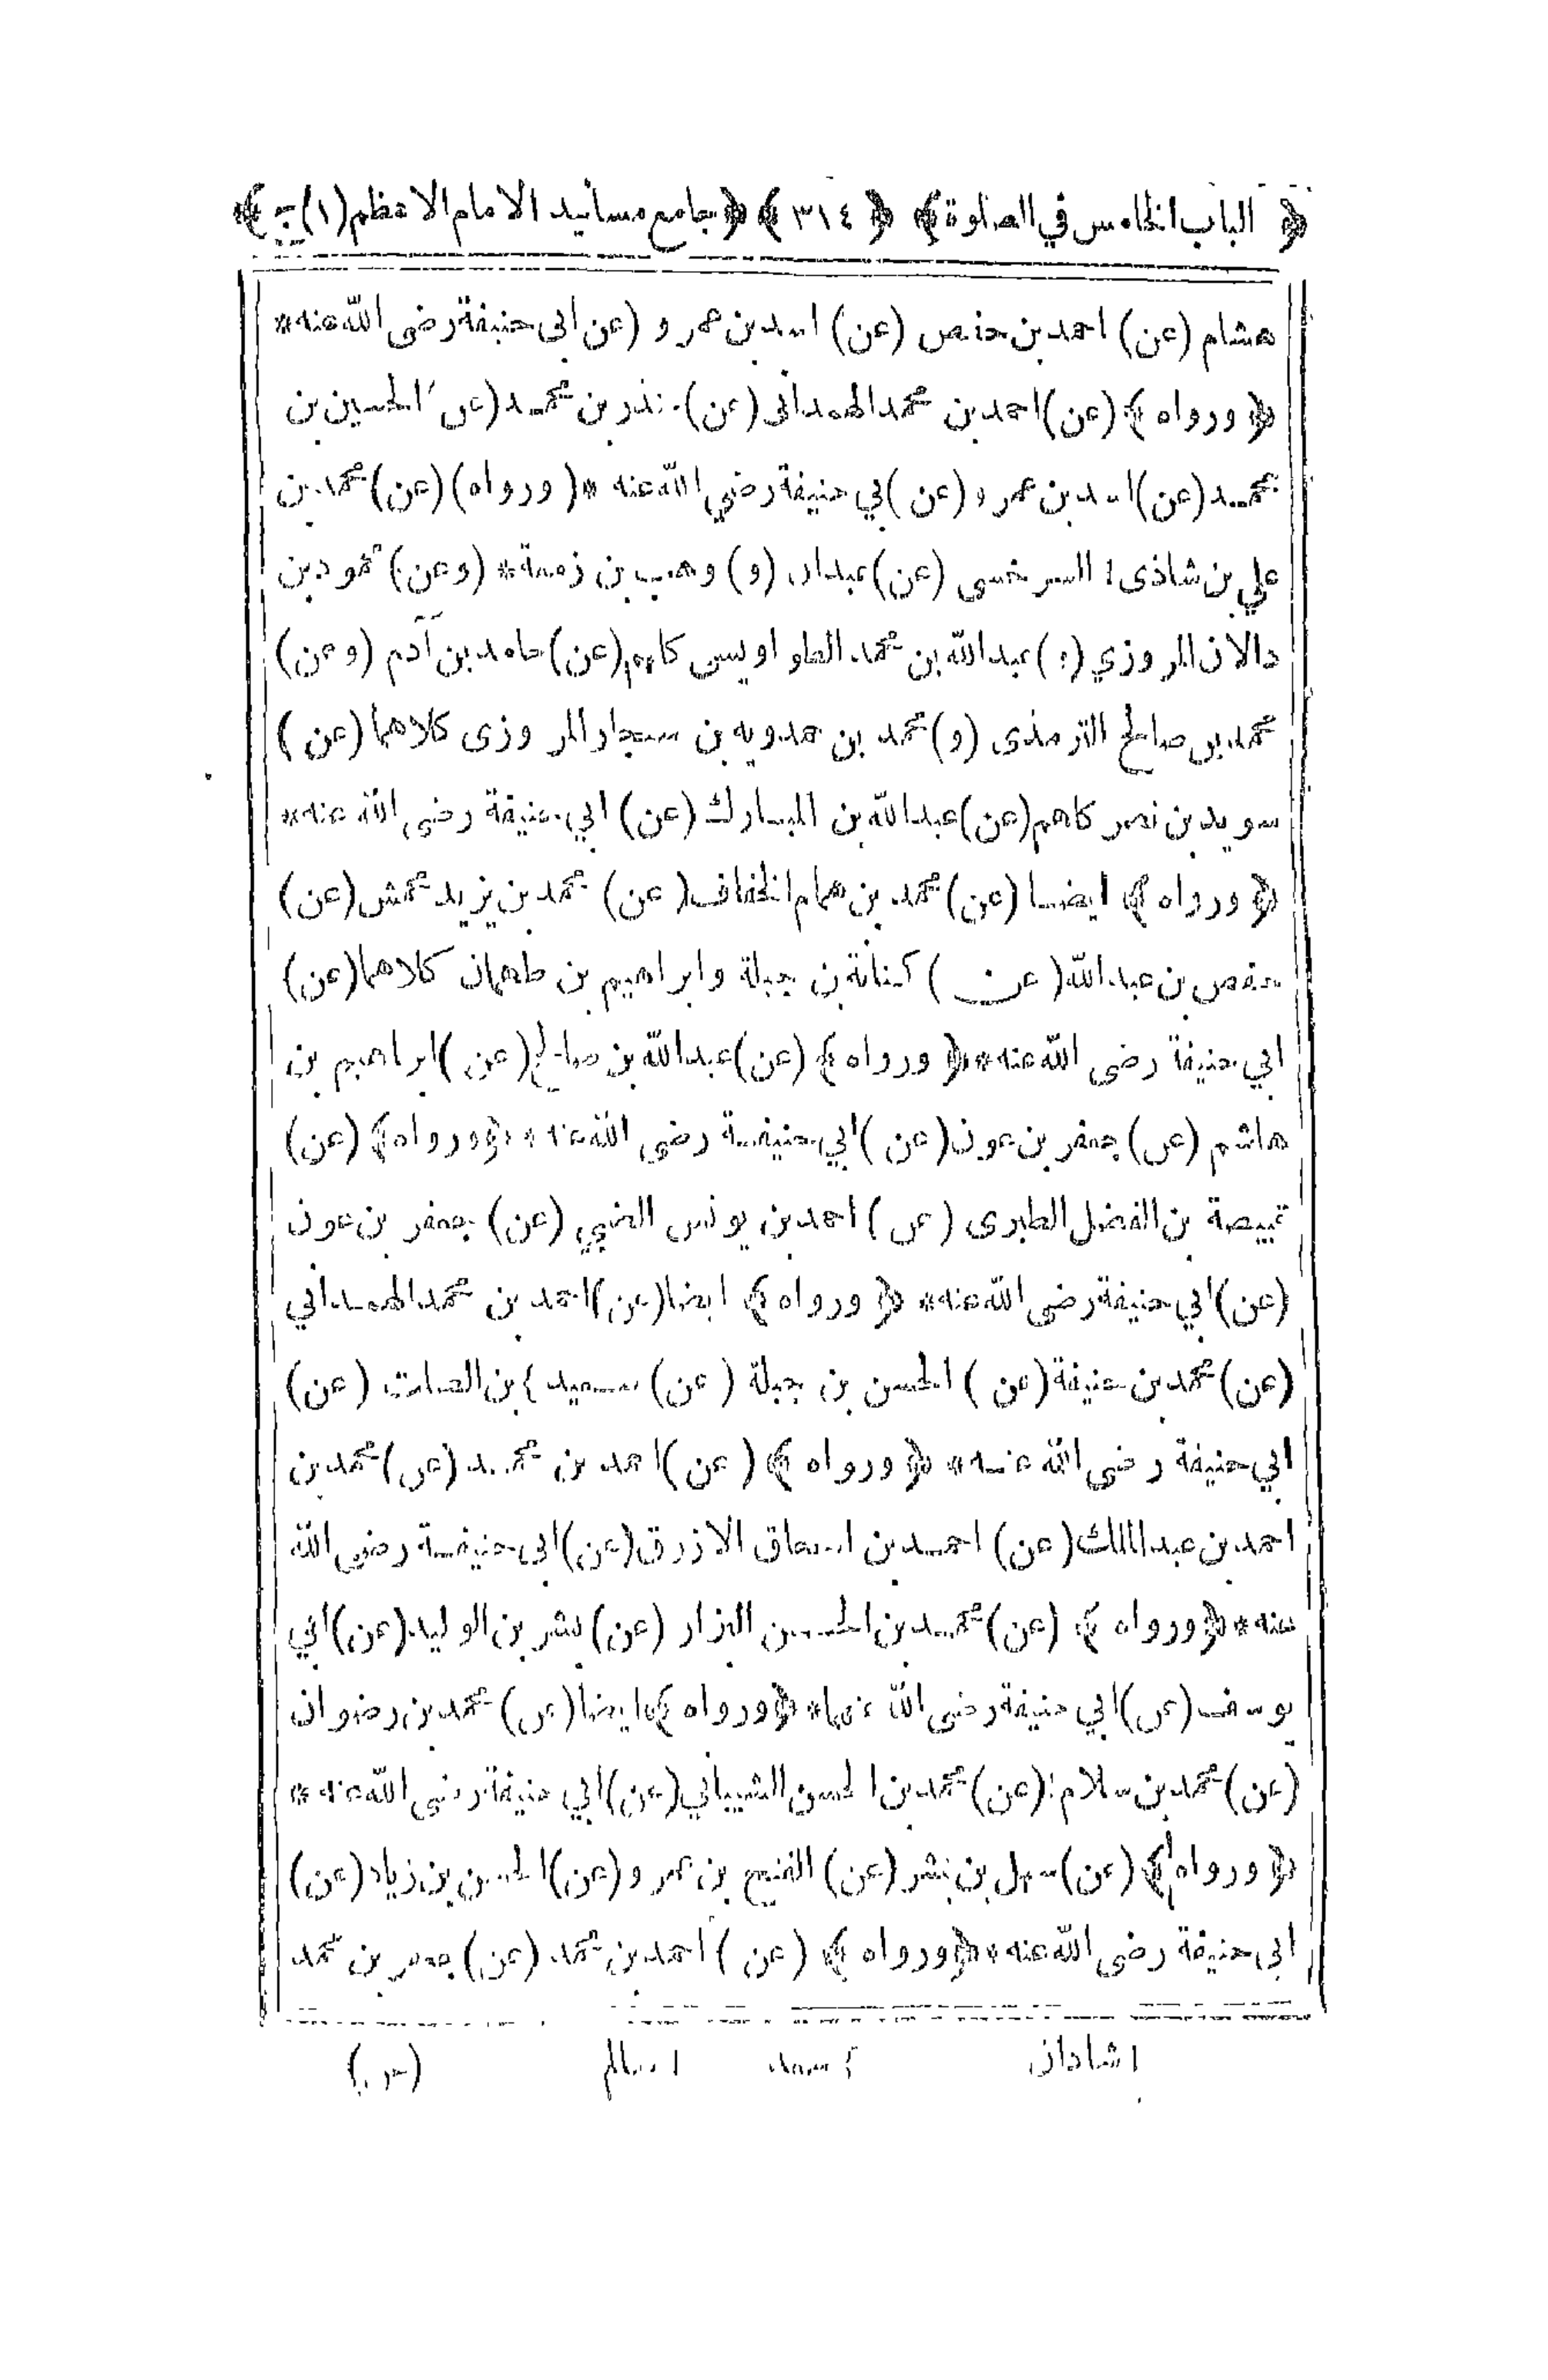 ﴿ الباب الخامس في الصلوة ﴾ ﴿ ٣١٤ ﴾ ﴿ جامع مسانيد الامام الاعظم (١) ج ﴾
هشام (عن) احمد بن حفص (عن) اسد بن عمرو (عن ابى حنيفة رضى الله عنه *
﴿ ورواه ﴾ (عن) احمد بن محمد الهمدانى (عن) منذر بن محمد (عن) الحسين بن
محمد (عن) اسد بن عمرو (عن) ابي حنيفة رضي الله عنه * (ورواه) (عن) محمد بن
علي بن شاذى ١ السرخسى (عن) عبدان (و) وهب بن زمعة * (وعن) محمود بن
دالان المروزي (و) عبد الله بن محمد الطواويسى كلهم (عن) حامد بن آدم (وعن)
محمد بن صالح الترمذى (و) محمد بن حمدويه بن سنجار المروزى كلاهما (عن)
سويد بن نصر كلهم (عن) عبد الله بن المبارك (عن) ابي حنيفة رضى الله عنه *
﴿ ورواه ﴾ ايضا (عن) محمد بن همام الخفاف (عن) محمد بن يزيد محمش (عن)
حفص بن عبد الله (عن) كنانة بن جبلة وابراهيم بن طهمان كلاهما (عن)
ابي حنيفة رضى الله عنه * ﴿ ورواه ﴾ (عن) عبد الله بن صالح (عن) ابراهيم بن
هاشم (عن) جعفر بن عون (عن) ابي حنيفة رضى الله عنه * ﴿ ورواه ﴾ (عن)
قبيصة بن الفضل الطبرى (عن) احمد بن يونس الضبي (عن) جعفر بن عون
(عن) ابي حنيفة رضى الله عنه * ﴿ ورواه ﴾ ايضا (عن) احمد بن محمد الهمداني
(عن) محمد بن حنيفة (عن) الحسن بن جبلة (عن) سعيد ٢ بن الصلت (عن)
ابي حنيفة رضى الله عنه * ﴿ ورواه ﴾ (عن) احمد بن محمد (عن) محمد بن
احمد بن عبد الملك (عن) احمد بن اسحاق الازرق (عن) ابى حنيفة رضى الله
عنه * ﴿ ورواه ﴾ (عن) محمد بن الحسين البزار (عن) بشر بن الوليد (عن) ابي
يوسف (عن) ابي حنيفة رضى الله عنهما * ﴿ ورواه ﴾ ايضا (عن) محمد بن رضوان
(عن) محمد بن سلام ١ (عن) محمد بن الحسن الشيباني (عن) ابي حنيفة رضى الله عنه *
﴿ ورواه ﴾ (عن) سهل بن بشر (عن) الفتح بن عمرو (عن) الحسن بن زياد (عن)
ابى حنيفة رضى الله عنه * ﴿ ورواه ﴾ (عن) احمد بن محمد (عن) جعفر بن محمد
١ شاذان ٢ سعد ١ سالم